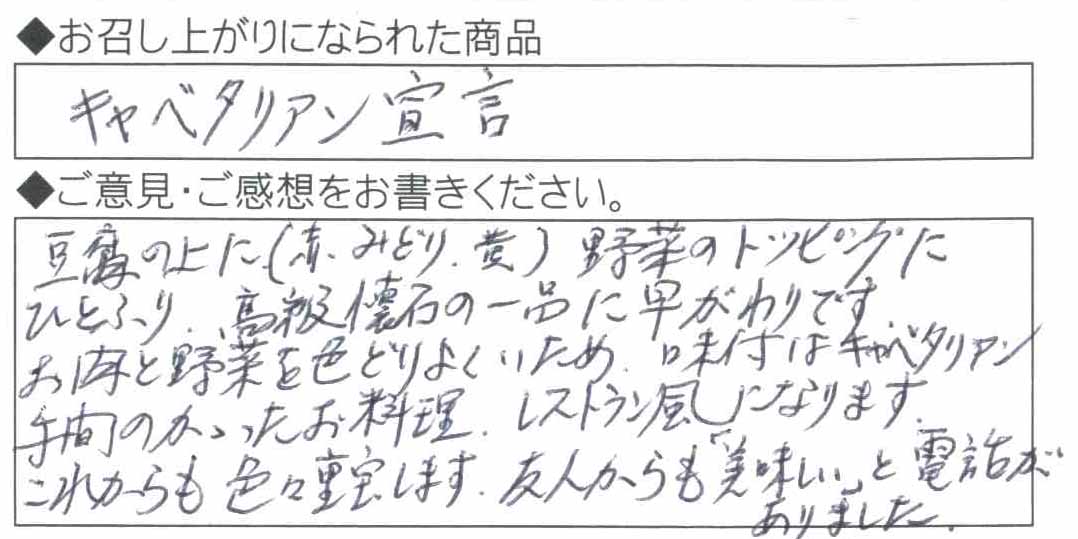 ◆お召し上がりになられた商品
キャベタリアン宣言
◆ご意見・ご感想をお書きください。
豆腐の上に(赤、みどり、黄)野菜のトッピングに
ひとふり、高級懐石の一品に早がわりです。
お肉と野菜を色どりよくいため、味付はキャベタリアン
手間のかゝったお料理、レストラン風になります。
これからも色々重宝します。友人からも「美味しい」と電話が
ありました。